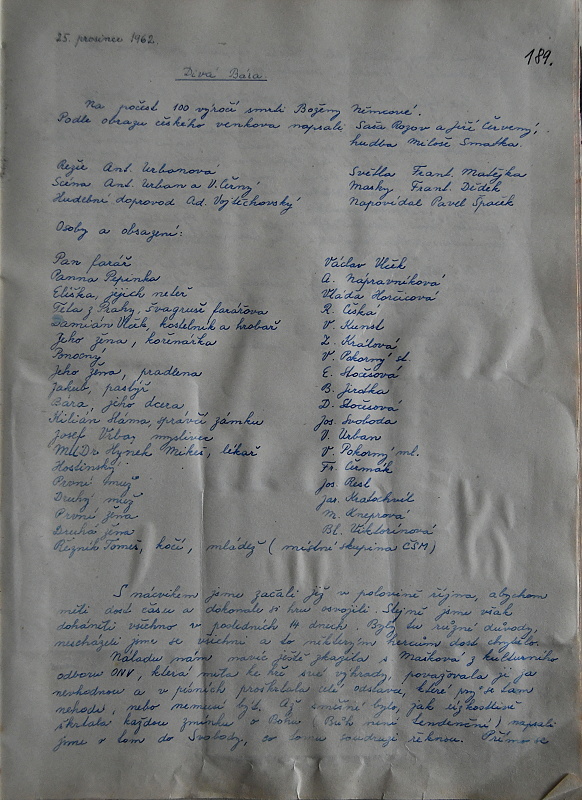 25. prosince 1962.
189.
Divá Bára.
Na počest 100 výročí smrti Boženy Němcové.
Podle obrazu českého venkova napsali Saša Rozov a Jiří Červený,
hudba Miloše Smatka.
Režie Ant. Urbanová
Světla Frant. Matějka
Scéna Ant. Urban a V. Černý
Masky Frant. Dědek
Hudební doprovod Ad. Vojtěchovský
Napovídal Pavel Špaček
Osoby a obsazení:
Pan farář Václav Vlček
Panna Pepinka A. Nápravníková
Eliška, jejich neteř Vláďa Horčicová
Téta z Prahy, švagruše farářova R. Česká
Damián Vlček, kostelník a hrobař V. Kunst
Jeho žena, kořenářka Z. Králová
Ponocný V. Pokorný st.
Jeho žena, pradlena E. Stočesová
Jakub, pastýř B. Jirdka
Bára, jeho dcera D. Stočesová
Kilián Sláma, správčí zámku Jos. Svoboda
Josef Vrba, myslivec V. Urban
MUDr. Hynek Mikeš, lékař V. Pokorný ml.
Hostinský Fr. Čermák
První muž Jos. Resl
Druhý muž Jar. Kratochvíl
První žena M. Kneprová
Druhá žena Bl. Viktorinová
Řezník Tomeš, kočí, mládež (místní skupina ČSM)
S nácvikem jsme začali již v polovině října, abychom
měli dost času a dokonale si hru osvojili. Stejně jsme však
doháněli všechno v posledních 14 dnech. Byly tu různé důvody,
nescházeli jsme se všichni a to některým hercům dost chybělo.
Náladu nám navíc ještě zkazila s. Mašková z kulturního
odboru ONV, která měla ke hře své výhrady, považovala ji za
nevhodnou a v písních proškrtala celé odstavce, které prý se tam
nehodí, nebo nemusí být. Až směšné bylo, jak úzkostlivě
škrtala každou zmínku o Bohu (Bůh není tendenční) napsali
jsme o tom do Svobody, co tomu soudruzi řeknou. Přímo se